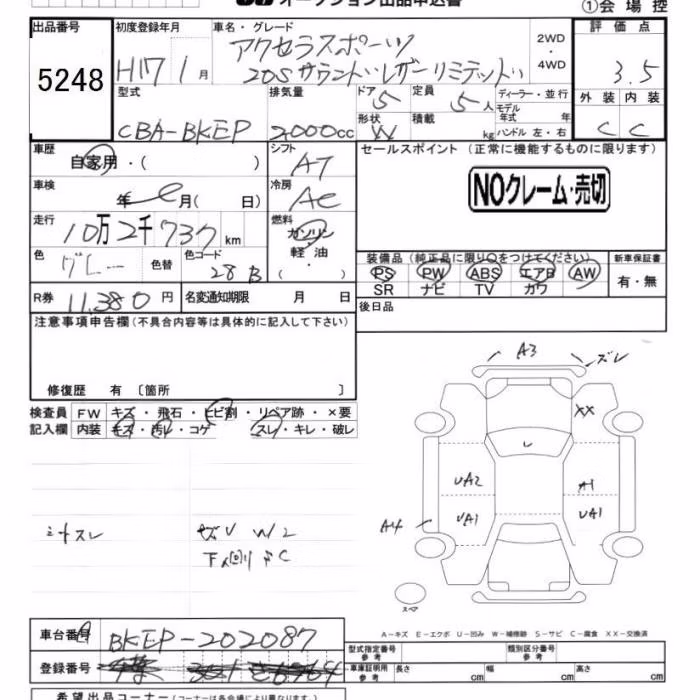 オークション出品申込書
①会場控
出品番号
5248
初度登録年月
H17 1月
車名・グレード
アクセラスポーツ
20Sサラウンド レザーリミテッド
2WD
4WD
評価点
3.5
型式
CBA-BKEP
排気量
2000cc
ドア
5
定員
5人
ディーラー・並行
モデル年式 年
形状
W
積載 kg
ハンドル 左・右
外装 内装
C C
車歴
自家用・( )
シフト
AT
セールスポイント (正常に機能するものに限ります)
NOクレーム・売切
車検
年 月( 日)
冷房
AC
走行
10万2千737km
燃料
ガソリン
軽油
( ・ )
色
グレー
色替
色コード
28B
装備品(純正品に限り○をつけてください)
PS PW ABS エアB AW
SR ナビ TV カワ
新車保証書
有・無
R券
11.380円
名変通知期限 月 日
後日品
注意事項申告欄(不具合内容等は具体的に記入して下さい)
修復歴 有 〔箇所 〕
検査員記入欄
FW キズ・飛石・ヒビ割・リペア跡・×要
内装 キズ・汚レ・コゲ スレ・キレ・破レ
A3
ズレ
XX
UA2
A1
UA1
UA1
A4
スペア
W2
A-キズ E-エクボ U-凹み W-補修跡 S-サビ C-腐食 XX-交換済
車台番号
BKEP-202087
登録番号
型式指定番号
参考
類別区分番号
参考
車庫証明用
参考
長さ cm
幅 cm
高さ cm
希望出品コーナー(コーナーは各会場により異なります。)